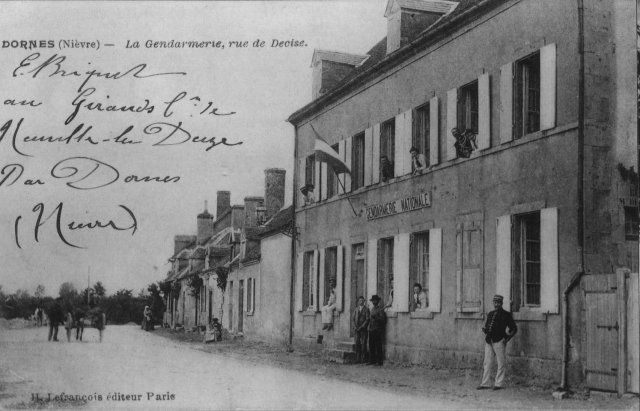 DORNES (Nièvre) — La Gendarmerie, rue de Decise.
E. Briquet
au Girands Cne de
Neuville-les-Decize
Par Dornes
(Nièvre)
GENDARMERIE NATIONALE
H. Lefrançois éditeur Paris